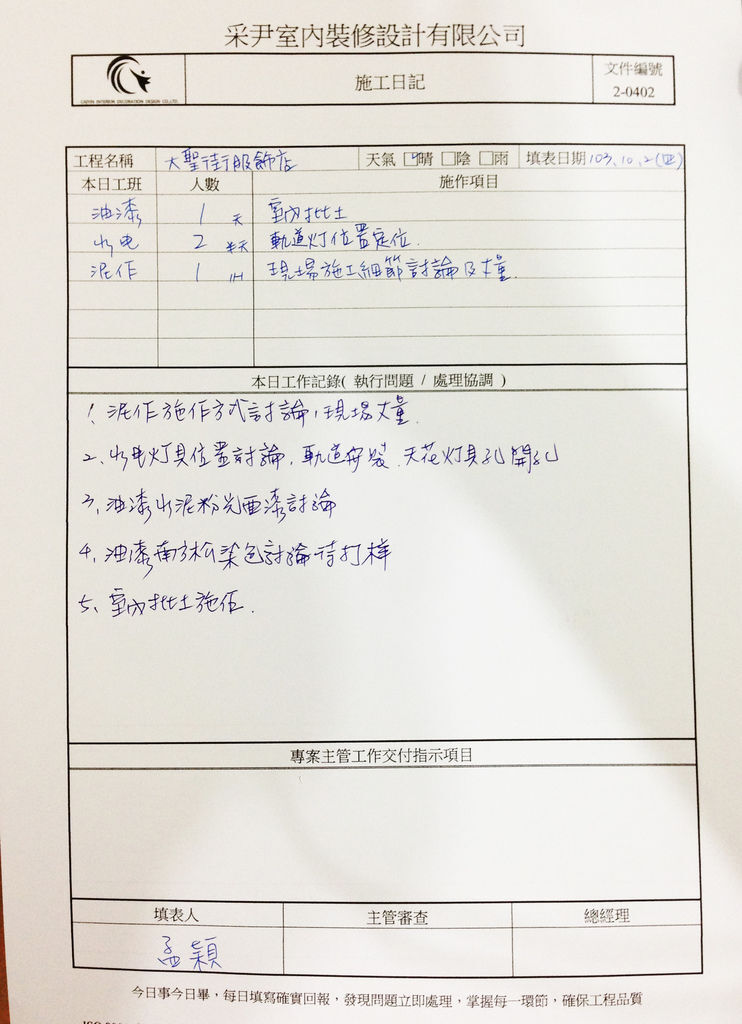 采尹室內裝修設計有限公司
CAIYIN INTERIOR DECORATION DESIGN CO.,LTD.
施工日記
文件編號
2-0402
工程名稱 大聖街服飾店 天氣 ☑晴 □陰 □雨 填表日期 103.10.2(四)
本日工班 人數 施作項目
油漆 1 天 室內批土
水电 2 半天 軌道灯位置定位.
泥作 1 1H 現場施工細節討論及丈量.
本日工作記錄( 執行問題 / 處理協調 )
1. 泥作施作方式討論,現場丈量.
2、水电灯具位置討論,軌道安裝、天花灯具孔開孔
3、油漆水泥粉光面漆討論
4、油漆南方松染色討論待打樣
5、室內批土施作.
專案主管工作交付指示項目
填表人 主管審查 總經理
孟穎
今日事今日畢,每日填寫確實回報,發現問題立即處理,掌握每一環節,確保工程品質